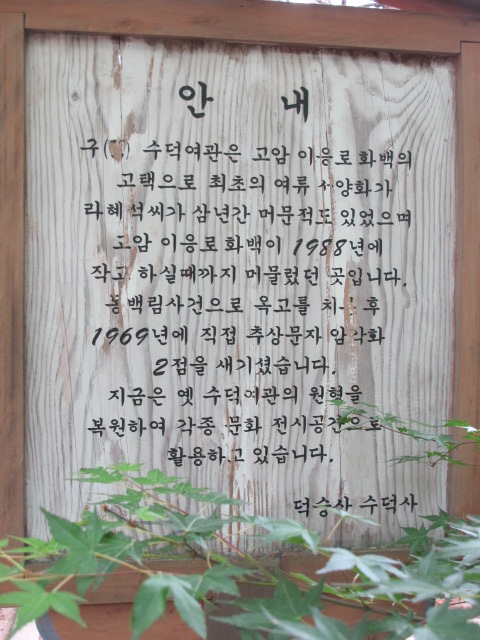 안 내
구( ) 수덕여관은 고암 이응로화백의
고택으로 최초의 여류 서양화가
라혜석씨가 삼년간 머문적도 있었으며
고암 이응로화백이 1988년에
작고 하실때까지 머물렀던 곳입니다.
동백림사건으로 옥고를 후
1969년에 직접 추상문자 암각화
2점을 새기셨습니다.
지금은 옛 수덕여관의 원형을
복원하여 각종 문화 전시공간으로
활용하고 있습니다.
덕숭사 수덕사